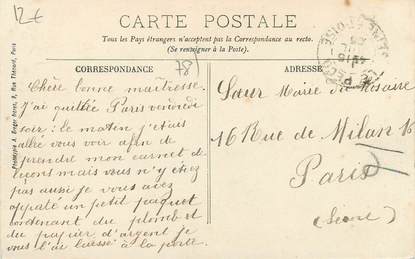 12€
CARTE POSTALE
Tous les Pays étrangers n'acceptent pas la Correspondance au recto.
(Se renseigner à la Poste).
CORRESPONDANCE
78)
ADRESSE
SEINE ET OISE
Phototypie A. Breger frères, 9, Rue Thénard, Paris
Chère bonne maîtresse
J'ai quittée Paris vendredi
soir; le matin j'étais
allée vous voir afin de
prendre mon carnet de
leçons mais vous n'y étiez
pas aussi je vous avez
apporté un petit paquet
contenant du plomb et
du papier d'argent je
vous l'ai laissé à la porte
Sœur Marie du Rosaire
16 Rue de Milan 16
Paris
(Seine)